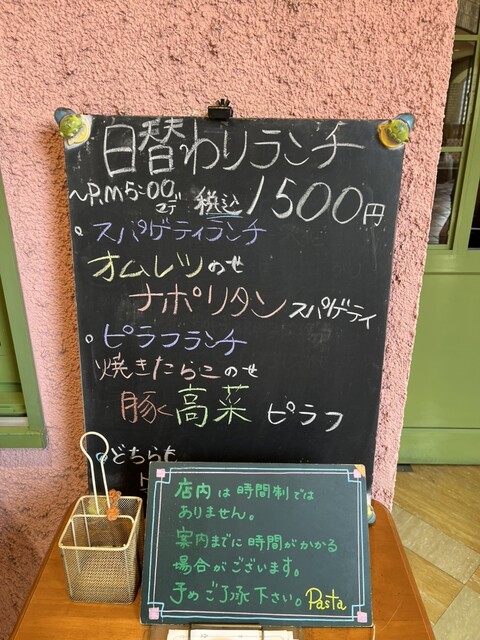 日替わりランチ
〜P.M5:00まで 税込 1500円
スパゲティランチ
オムレツのせ
ナポリタン スパゲティ
ピラフランチ
焼きたらこのせ
豚く高菜 ピラフ
どちらも
店内は時間制では
ありません。
案内までに時間がかかる
場合がございます。
予めご了承下さい。 Pasta